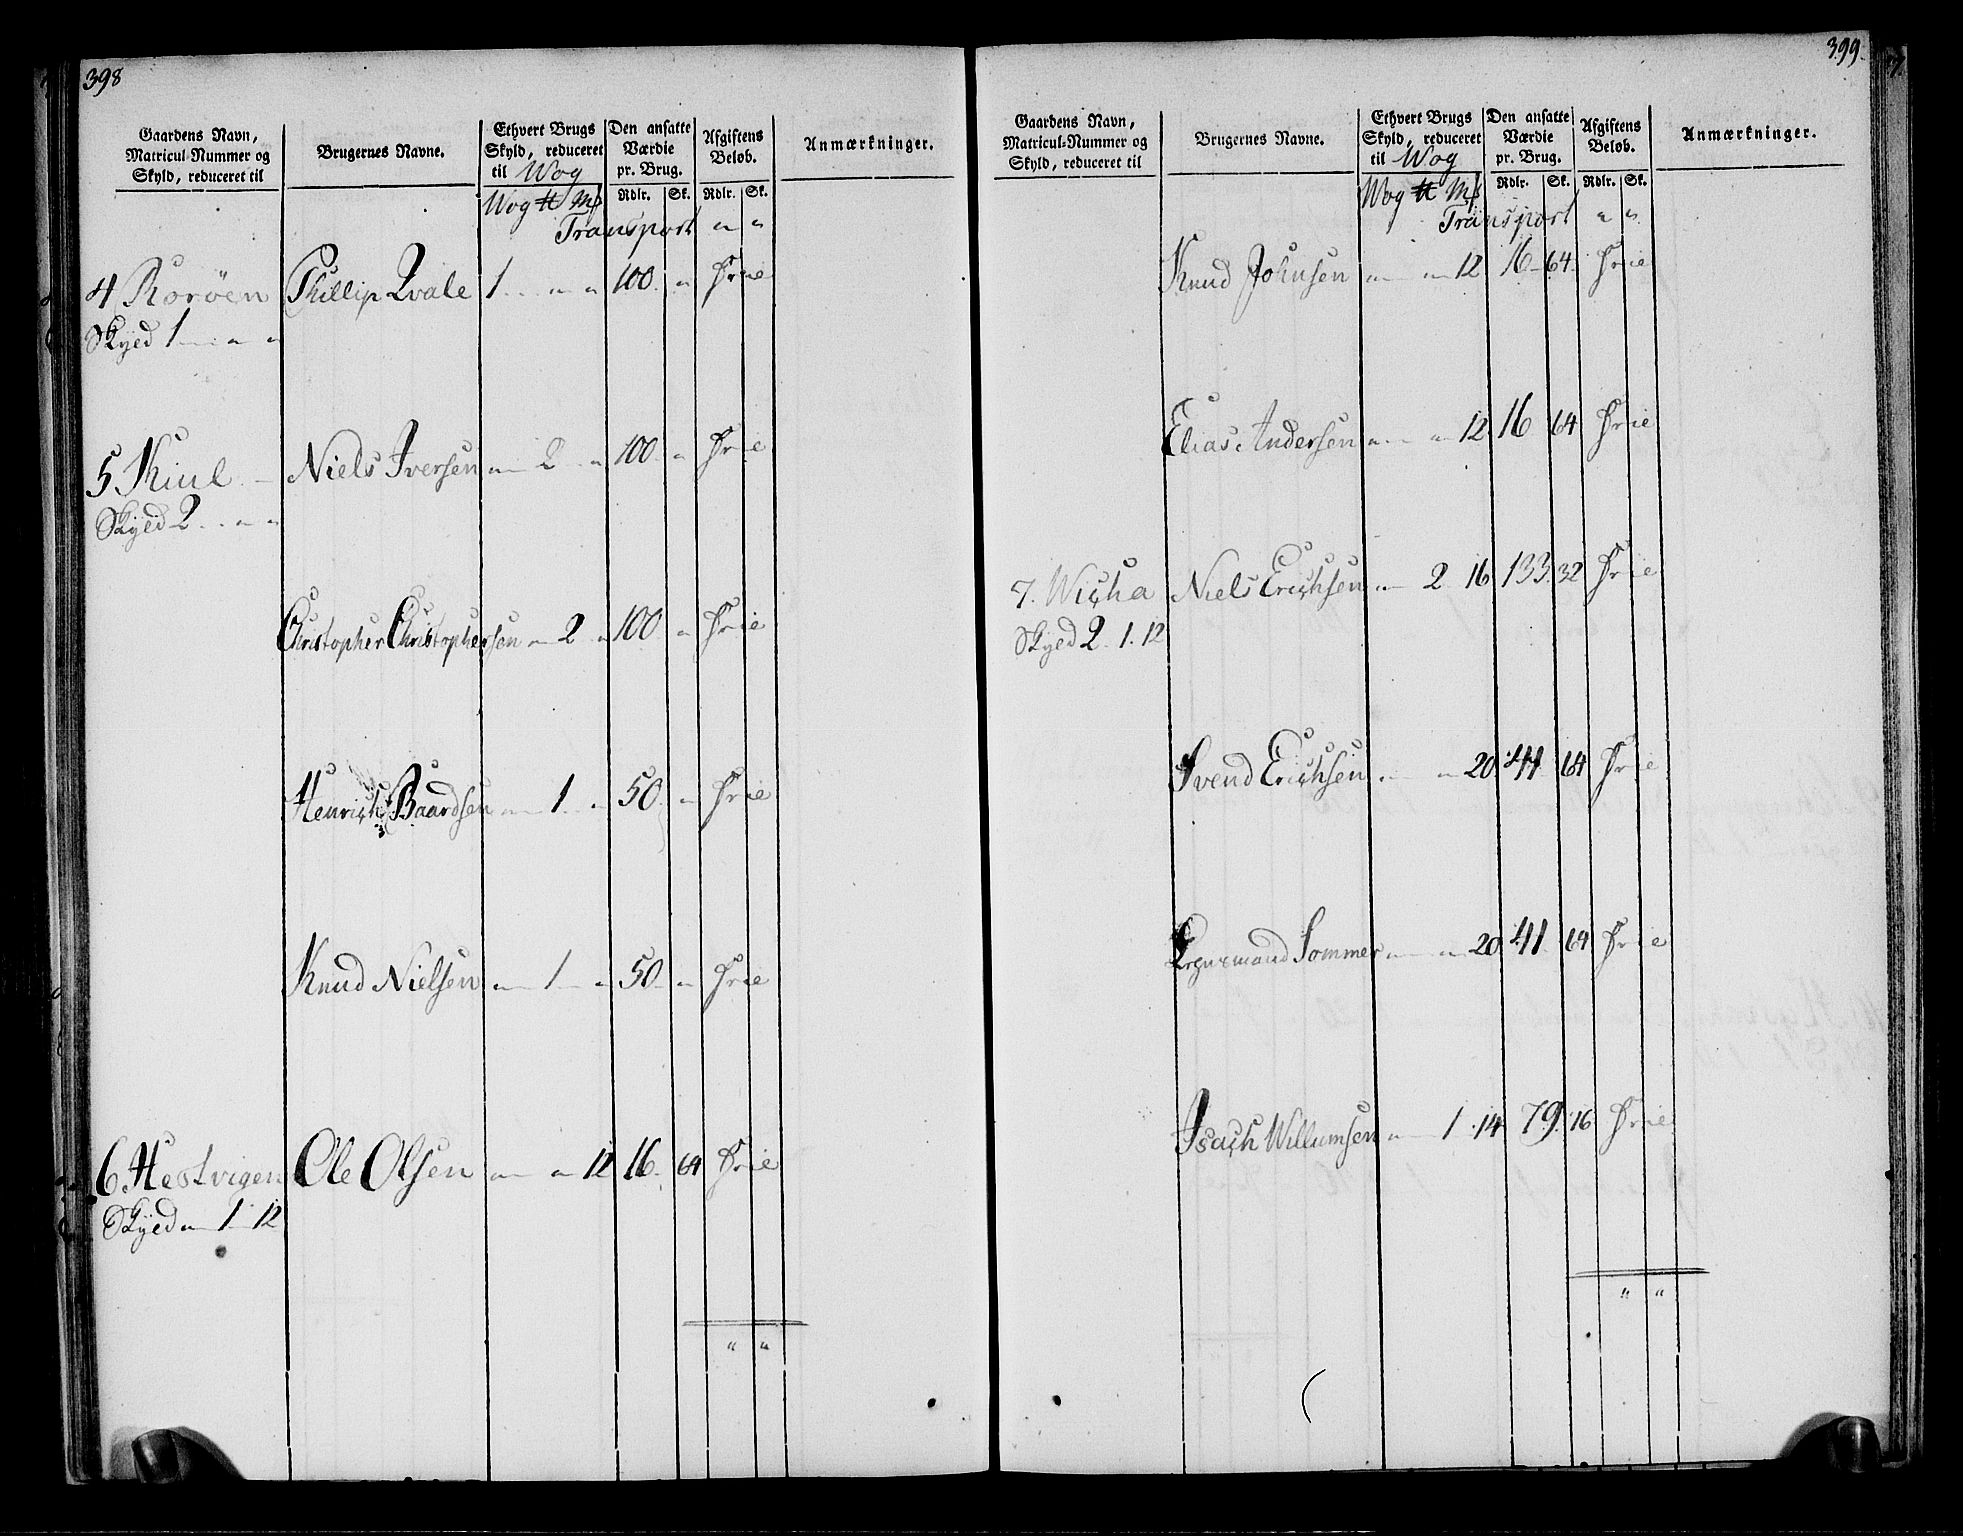 398
Gaardens Navn, Matricul-Nummer og Skyld, reduceret til
Brugernes Navne.
Ethvert Brugs Skyld, reduceret til Wog
Den ansatte Værdie pr. Brug.
Afgiftens Beløb.
Anmærkninger.
Wog ℔ Mk Rdlr. Sk. Rdlr. Sk.
Transport " "
4 Rorøen Phillip Qvale 1 " " 100 " Frie
Skyld 1 " "
5 Kiul Niels Iversen " 2 " 100 " Frie
Skyld 2 " "
Christopher Christophersen " 2 " 100 " Frie
Henrich Baardsen " 1 " 50 " Frie
Knud Nielsen " 1 " 50 " Frie
6 Hestvigen Ole Olsen " " 12 16 64 Frie
Skyld " 1 12
" "
399.
Gaardens Navn, Matricul-Nummer og Skyld, reduceret til
Brugernes Navne.
Ethvert Brugs Skyld, reduceret til Wog
Den ansatte Værdie pr. Brug.
Afgiftens Beløb.
Anmærkninger.
Wog ℔ Mk Rdlr. Sk. Rdlr. Sk.
Transport " "
Knud Johnsen " " 12 16 64 Frie
Elias Andersen " " 12 16 64 Frie
7. Wicha Niels Erichsen " 2 16 133 32 Frie
Skyld 2. 1. 12
Svend Erichsen " " 20 41 64 Frie
Sommer " " 20 41 64 Frie
Isach Willumsen " 1 14 79 16 Frie
" "